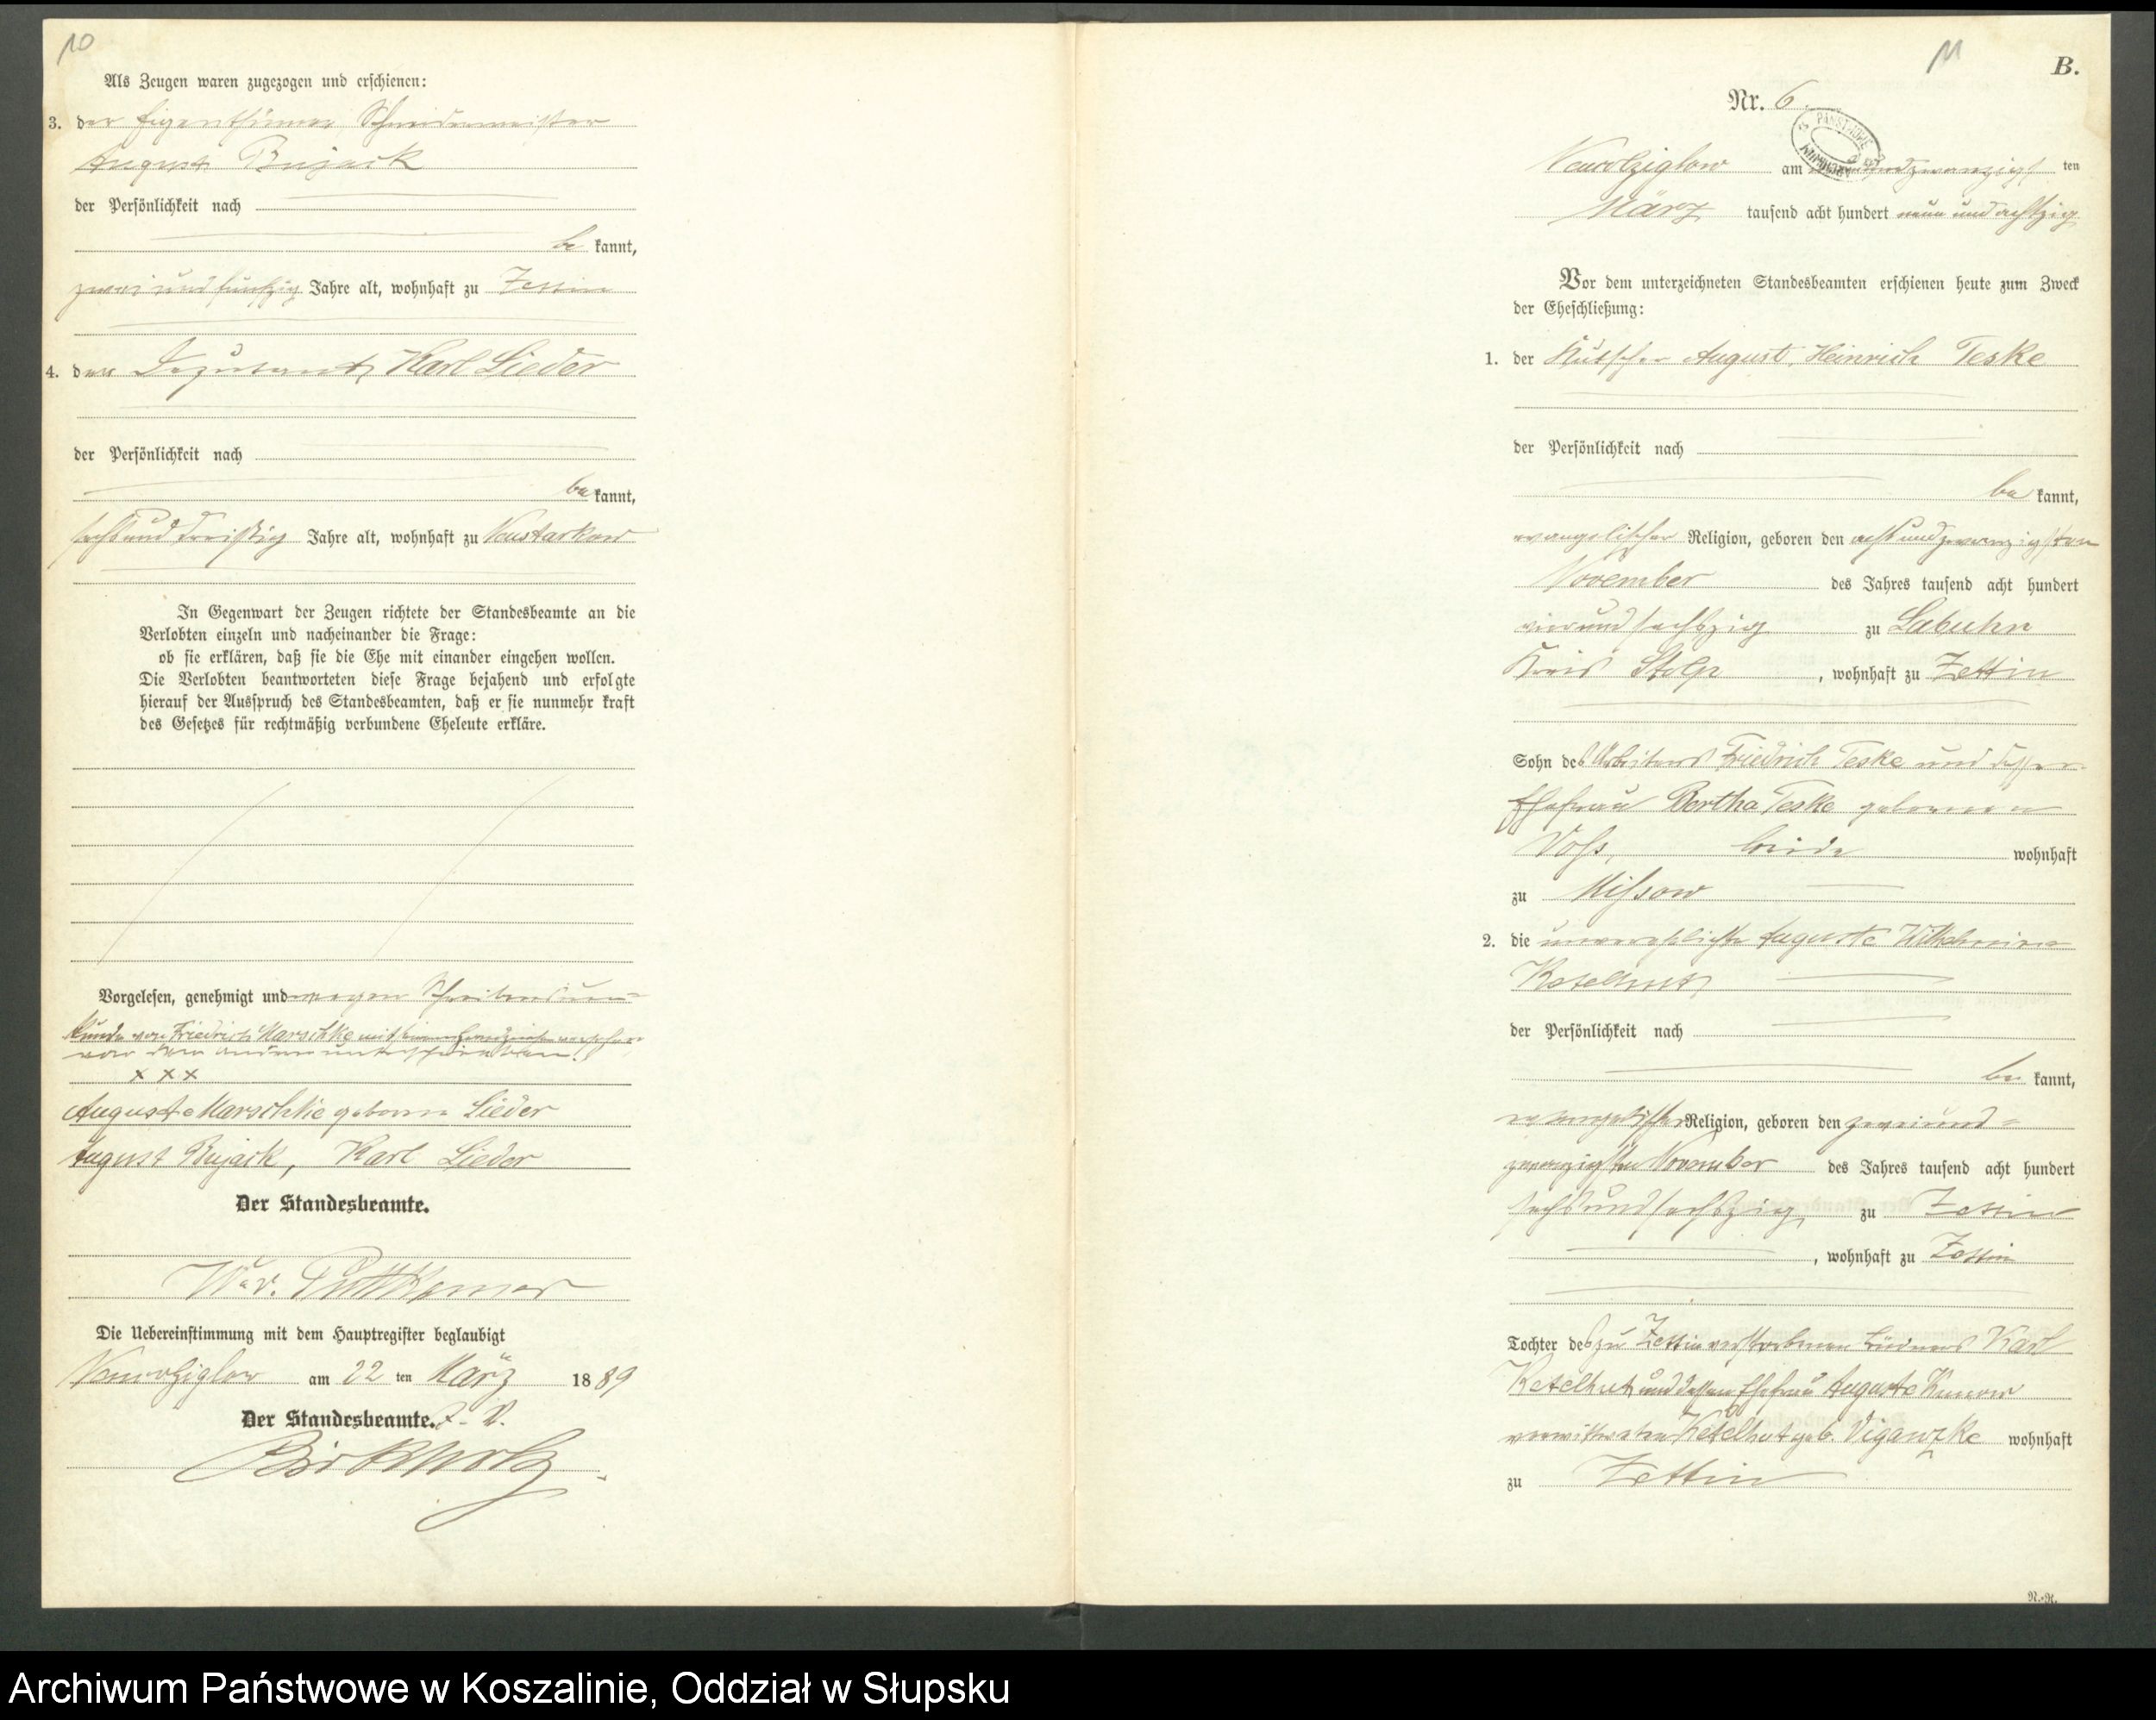 10
Als Zeugen waren zugezogen und erschienen:
3. der Eigenthümer, Schneidermeister
August Bujack
der Persönlichkeit nach
be kannt,
zwei und funfzig Jahre alt, wohnhaft zu Zessin
4. der Deputant Karl Lieder
der Persönlichkeit nach
be kannt,
sechsund dreißig Jahre alt, wohnhaft zu Neustarkow
In Gegenwart der Zeugen richtete der Standesbeamte an die
Verlobten einzeln und nacheinander die Frage:
ob sie erklären, daß sie die Ehe mit einander eingehen wollen.
Die Verlobten beantworteten diese Frage bejahend und erfolgte
hierauf der Ausspruch des Standesbeamten, daß er sie nunmehr kraft
des Gesetzes für rechtmäßig verbundene Eheleute erkläre.
Vorgelesen, genehmigt und wegen Schreibensun=
kunde von Friedrich Marschke mit einem Handzeichen versehen
von den anderen unterschrieben.
x x x
Auguste Marschke geborne Lieder
August Bujack, Karl Lieder
Der Standesbeamte.
W. v. Puttkamer
Die Uebereinstimmung mit dem Hauptregister beglaubigt
am 22 ten März 1889
Der Standesbeamte. J. V.
Birkholz
11
B.
Nr. 6.
am undzwanzigst ten
März tausend acht hundert neun und achtzig
Vor dem unterzeichneten Standesbeamten erschienen heute zum Zweck
der Eheschließung:
1. der Kutscher August, Heinrich Teske
der Persönlichkeit nach
be kannt,
evangelischer Religion, geboren den achtundzwanzigsten
November des Jahres tausend acht hundert
vierund sechszig zu Labuhn
Kreis Stolp, wohnhaft zu Zettin
Sohn des Arbeiters Friedrich Teske und dessen
Ehefrau Bertha Teske geborenen
Voß, beide wohnhaft
zu Mißow
2. die unverehelichte Auguste Wilhelmine
Ketelhut
der Persönlichkeit nach
be kannt,
evangelischer Religion, geboren den zweiund=
zwanzigsten November des Jahres tausend acht hundert
sechsundsechszig zu Zessin
, wohnhaft zu Zettin
Tochter des zu Zettin verstorbenen Büdners Karl
Ketelhut und dessen Ehefrau Auguste
verwittweten Ketelhut geb. wohnhaft
zu Zettin
N.-R.
Archiwum Państwowe w Koszalinie, Oddział w Słupsku